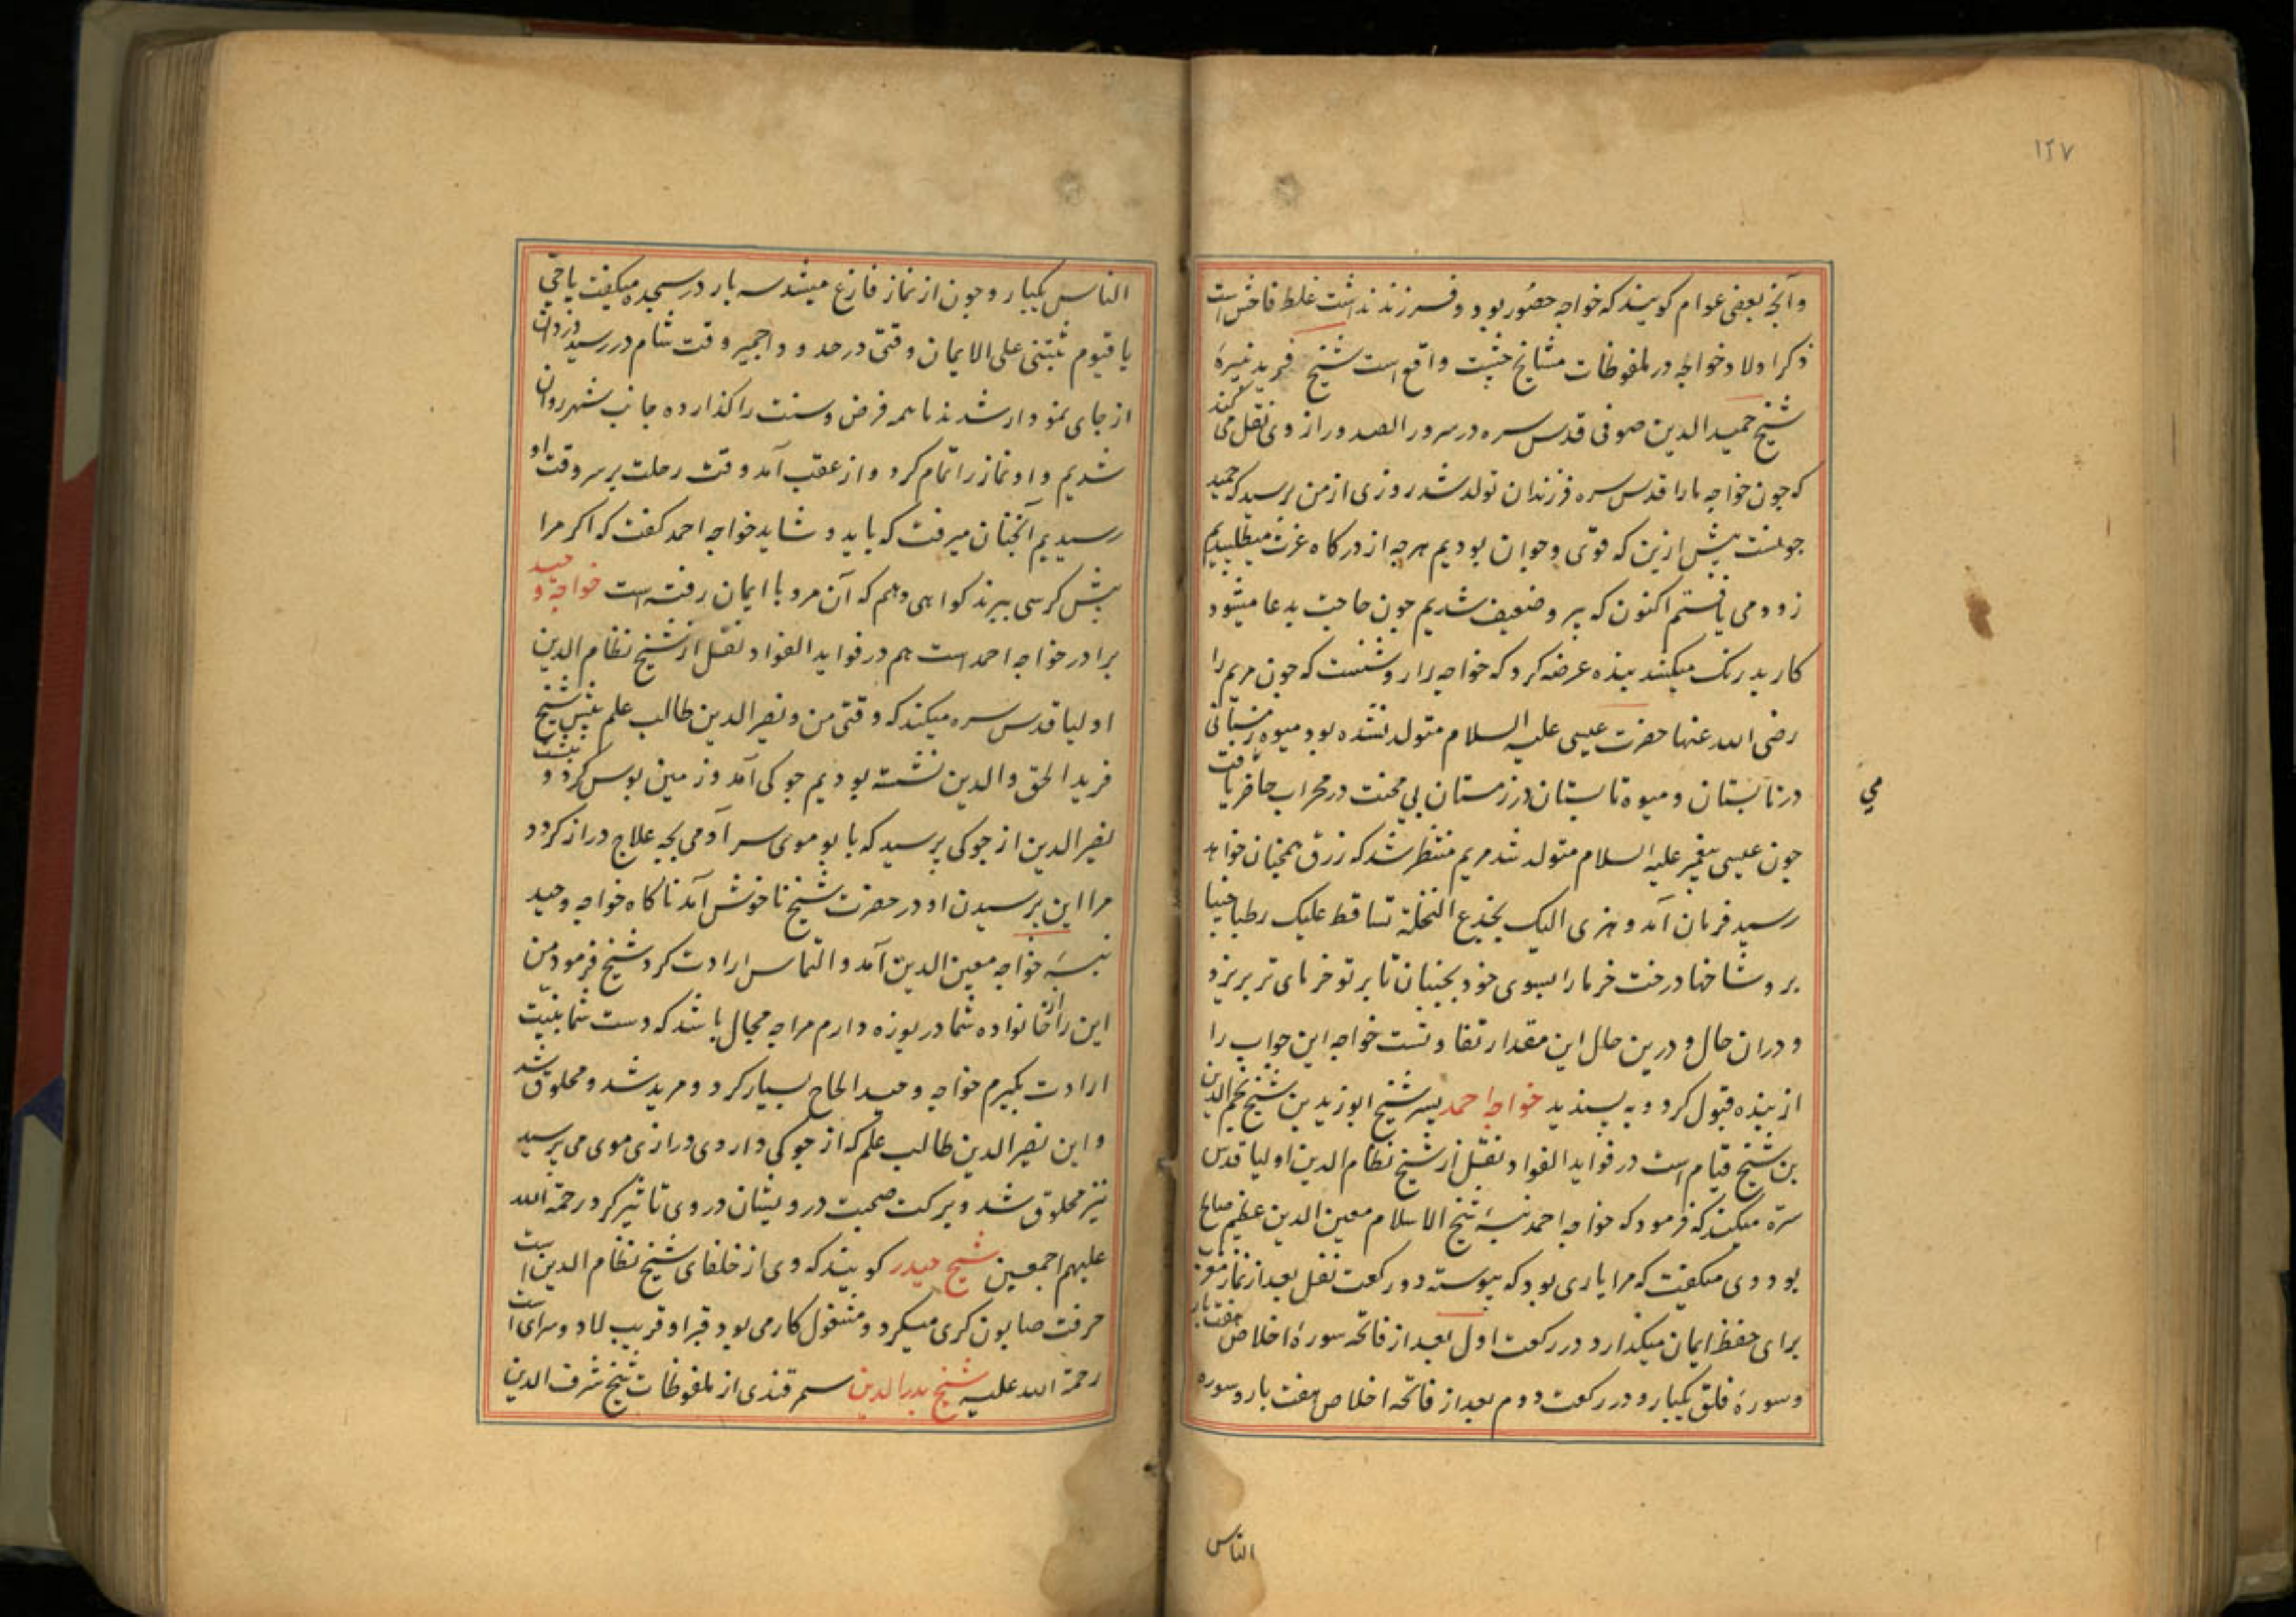 ۱۲۷
وآنچه بعضی عوام کویند که خواجه حصُور بود و فرزند نداشت غلط فاحش است
ذکر اولاد خواجه در ملفوظات مشایخ چشت واقع است شیخ فرید نبیرهٔ
شیخ حمید الدین صوفی قدس سره در سرور الصدور از وی نقل می کند
که چون خواجه ما را قدس سره فرزندان تولد شد روزی از من پرسید که حمید
چونست پیش ازین که قوی و جوان بودیم هرچه از درکاه عزت میطلبیدیم
زود می یافتم اکنون که پیر و ضعیف شدیم چون حاجت بدعا میشود
کار بدرنک میکشد بنده عرضه کرد که خواجه را روشنست که چون مریم را
رضی الله عنها حضرت عیسی علیه السلام متولد نشده بود میوه زمستانی
در تابستان و میوه تابستان در زمستان بی محنت در محراب حاضر یافت
می
چون عیسی پیغمبر علیه السلام متولد شد مریم منتظر شد که رزق همچنان خواهد
رسید فرمان آمد و هزی الیک بجذع النخلة تساقط علیک رطبا جنیا
برو شاخها درخت خرما را بسوی خود بجنبان تا بر تو خرمای تر بریزد
و دران حال و درین حال این مقدار تفاوتست خواجه این جواب را
از بنده قبول کرد و به پسندید خواجه احمد پسر شیخ ابوزید بن شیخ نجم الدین
بن شیخ قیام است در فواید الفواد نقل از شیخ نظام الدین اولیا قدس
سره میکند که فرمود که خواجه احمد نبسهٔ شیخ الاسلام معین الدین عظیم صالح
بود وی میکفت که مرا یاری بود که پیوسته دو رکعت نفل بعد از نماز مغرب
برای حفظ ایمان میکذارد در رکعت اول بعد از فاتحه سورهٔ اخلاص هفت بار
و سورهٔ فلق یکبار و در رکعت دوم بعد از فاتحه اخلاص هفت بار و سوره
الناس
الناس یکبار و چون از نماز فارغ میشد سه بار در سجده میکفت یا حیّ
یا قیوم ثبتنی علی الایمان وقتی در حدود اجمیر وقت شام در رسید دزدان
از جای نمودار شدند ما همه فرض و سنت را کذارده جانب شهر روان
شدیم و او نماز را تمام کرد و از عقب آمد وقت رحلت بر سر وقت او
رسیدیم آنچنان میرفت که باید و شاید خواجه احمد کفت که اکر مرا
پیش کرسی ببرند کواهی دهم که آن مرد با ایمان رفته است خواجه وحید
برادر خواجه احمد است هم در فواید الفواد نقل از شیخ نظام الدین
اولیا قدس سره میکند که وقتی من و نصیر الدین طالب علم پیش شیخ
فرید الحق والدین نشسته بودیم جوکی آمد و زمین بوس کرد و بنشست
نصیر الدین از جوکی پرسید که بابو موی سر آدمی بچه علاج دراز کردد
مرا این پرسیدن او در حضرت شیخ ناخوش آمد ناکاه خواجه وحید
نبسهٔ خواجه معین الدین آمد و التماس ارادت کرد شیخ فرمود من
این را از خانواده شما دریوزه دارم مرا چه مجال باشد که دست شما بنیت
ارادت بکیرم خواجه وحید الحاح بسیار کرد و مرید شد و محلوق شد
و این نصیر الدین طالب علم که از جوکی داروی درازی موی می پرسید
نیز محلوق شد و برکت صحبت درویشان در وی تاثیر کرد رحمة الله
علیهم اجمعین شیخ حیدر کویند که وی از خلفای شیخ نظام الدین است
حرفت صابون کری میکرد و مشغول کار می بود قبر او قریب لادو سرای است
رحمة الله علیه شیخ بدر الدین سمرقندی از ملفوظات شیخ شرف الدین